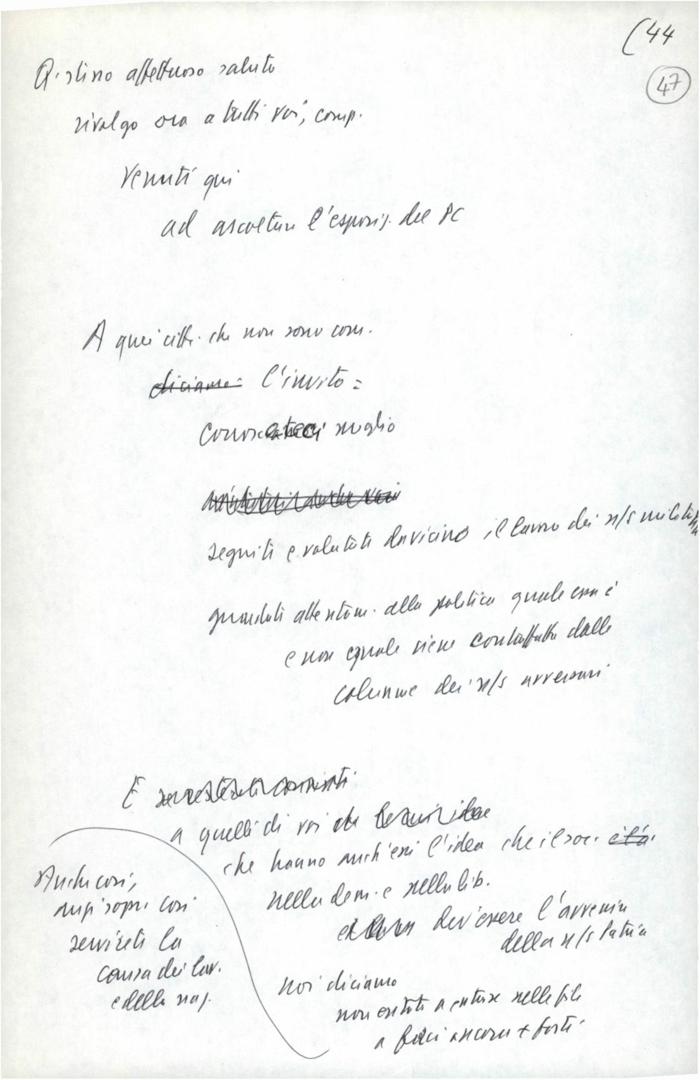 (44
47
affettuoso saluto
rivolgo ora a tutti voi, comp.
venuti qui
ad ascoltare l'esposiz. del PC
A quei citt. che non sono com.
diciamo: l'invito:
conosceteci meglio
seguiti e valutati da vicino il lavoro dei n/s militanti
guardati attentam. alla politica quale essa è
e non quale viene contraffatta dalle
colonne dei n/s avversari
E
a quelli di voi
che hanno anch'essi l'idea che il soc.
nella dem. e nella lib.
dev'essere l'avvenire
della n/s Patria
noi diciamo
non esitati a entrare nelle file
a farci ancora + forti
Anche così,
anzi sopr. così
serviréti la
causa dei lav.
e della naz.